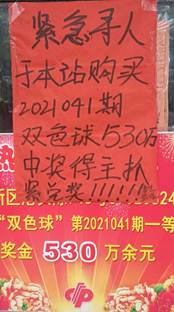 紧急寻人
于本站购买
2021041期
双色球530万
中奖得主扒
紧兑奖!!!!!!
热
“双色球”第2021041期一等
奖金 530 万余元